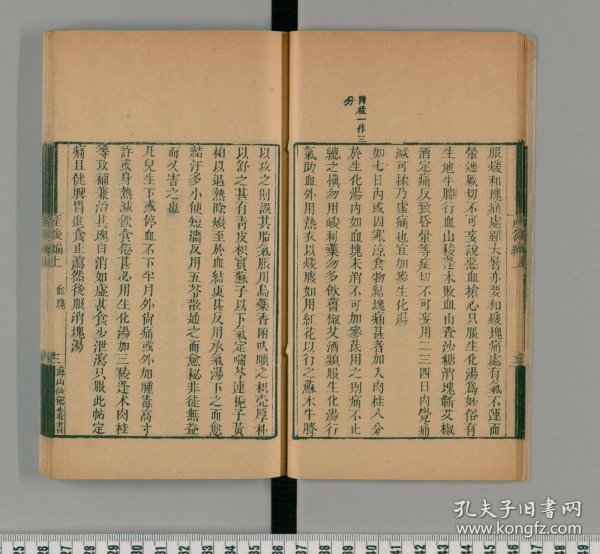 肉桂一作三
分
服煖和塊痛處雖大暑亦要和煖塊痛處有氣不運而
暈迷厥切不可妄說惡血搶心只服生化湯為妙俗有
生地牛膝行血山稜蓬朮敗血山查沙糖消塊蘄艾椒
酒定痛反致昏暈等症切不可妄用二三四日內覺痛
減可揉乃虛痛也宜加參生化湯
如七日內或因寒涼食物結塊痛甚者加入肉桂八分
於生化湯內如血塊未消不可加參芪用之則痛不止
總之慎勿用峻利藥勿多飲薑椒艾酒頻服生化湯行
氣助血外用熱衣以煖腹如用紅花以行之蘇木牛膝
以攻之則誤其胎氣脹用烏藥香附以順之枳殼厚朴
以舒之甚有青皮枳實蘇子以下氣定喘芩連梔子黃
柏以退熱除煩至於血結更甚反用承氣湯下之而愈
結汗多小便短澁反用五苓散通之而愈秘非徒無益
而又害之也
凡兒生下或停血不下半月外尙痛或外加腫毒高寸
許或身熱減飲食倦甚必用生化湯加三稜蓬朮肉桂
等攻補兼治其塊自消如虛甚食少泄瀉只服此帖定
痛且健脾胃進食止瀉然後服消塊湯
產後編上
血塊
十二
產後編上
孔夫子旧书网
www.kongfz.com
25 26 27 28 29 30 31 32 33 34 35 36 37 38 39 40 41 42 43 44 45 46 47 48 49